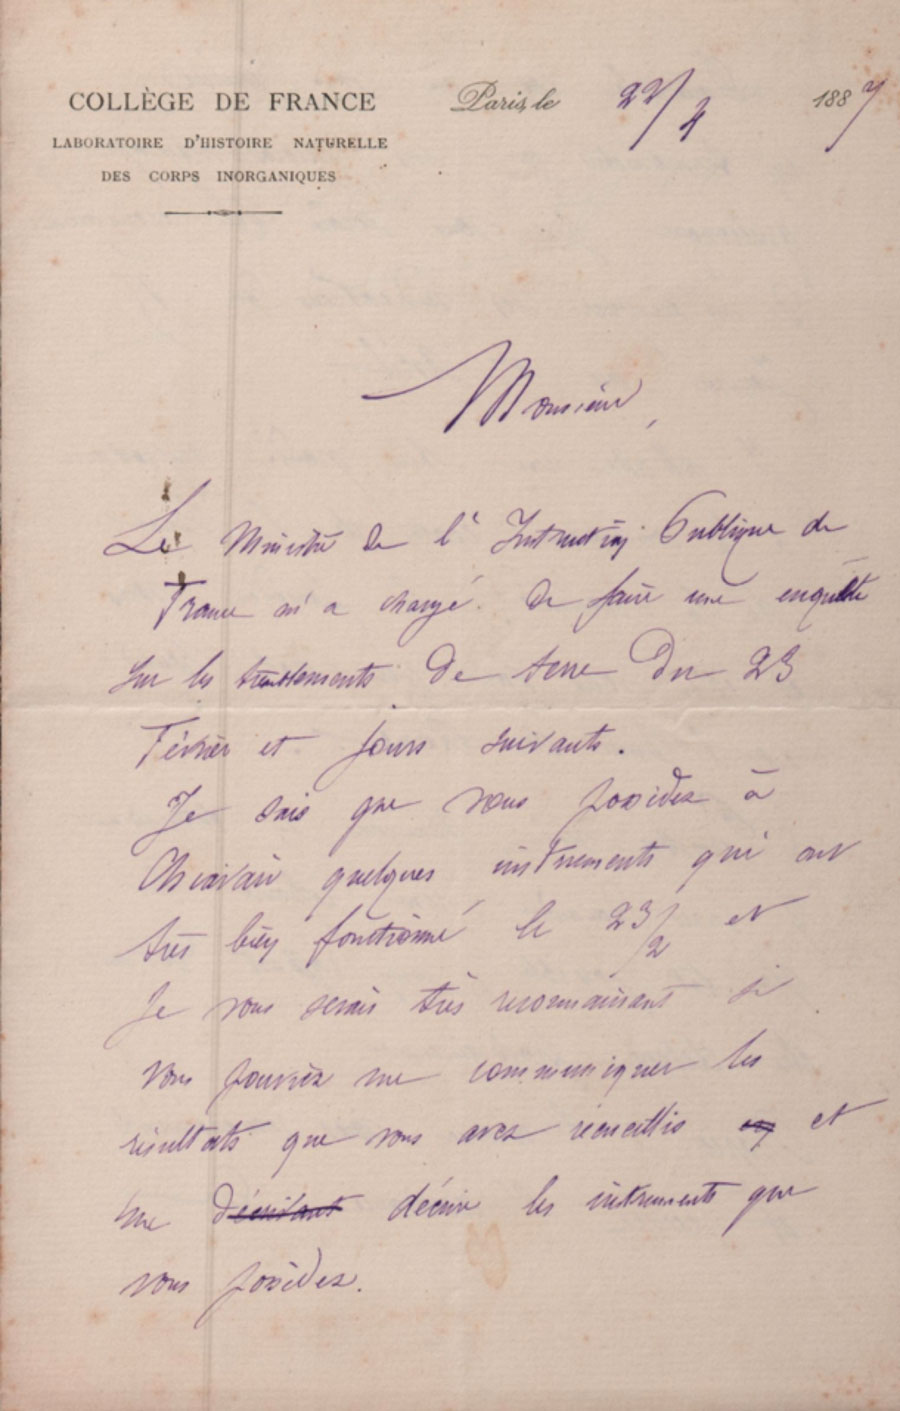 COLLÈGE DE FRANCE
LABORATOIRE D'HISTOIRE NATURELLE
DES CORPS INORGANIQUES
Paris, le 22/4 1887
Monsieur,
Le Ministre de l'Instruction Publique de
France m'a chargé de faire une enquête
sur les tremblements de terre du 23
Février et jours suivants.
Je sais que vous possédez à
quelques instruments qui ont
très bien fonctionné le 23/2 et
je vous serais très reconnaissant si
vous pouviez me communiquer les
résultats que vous avez recueillis et
me décrivant décrire les instruments que
vous possédez.